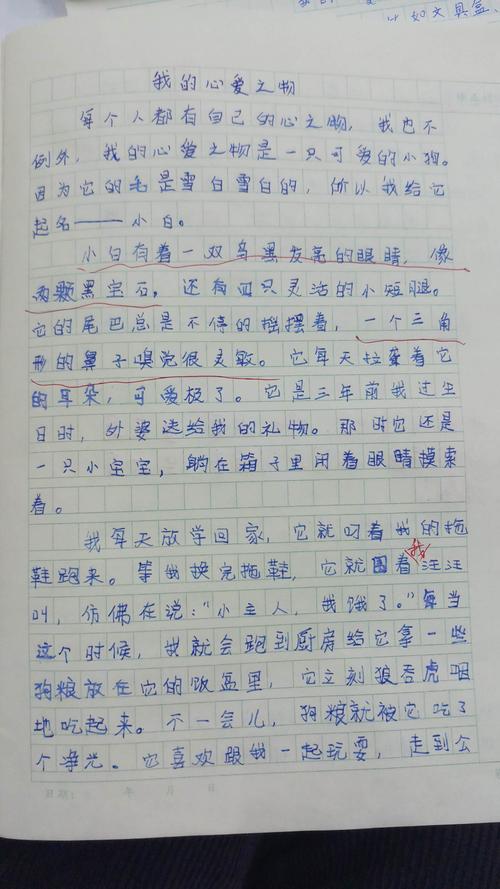 比如文具盒、
我的心爱之物
每个人都有自己的心之物，我也不
例外，我的心爱之物是一只可爱的小狗。
因为它的毛是雪白雪白的，所以我给它
起名——小白。
小白有着一双乌黑发亮的眼睛，像
两颗黑宝石。还有四只灵活的小短腿。
它的尾巴总是不停的摇摆着，一个三角
形的鼻子嗅觉很灵敏。它每天拉耷着它
的耳朵，可爱极了。它是三年前我过生
日时，外婆送给我的礼物。那时它还是
一只小宝宝，躺在箱子里闭着眼睛摸索
着。
我每天放学回家，它就叼着我的拖
鞋跑来。等我换完拖鞋，它就围着我汪汪
叫，仿佛在说：“小主人，我饿了。”每当
这个时候，我就会跑到厨房给它拿一些
狗粮放在它的饭盆里，它立刻狼吞虎咽
地吃起来。不一会儿，狗粮就被它吃了
个净光。它喜欢跟我一起玩耍，走到公